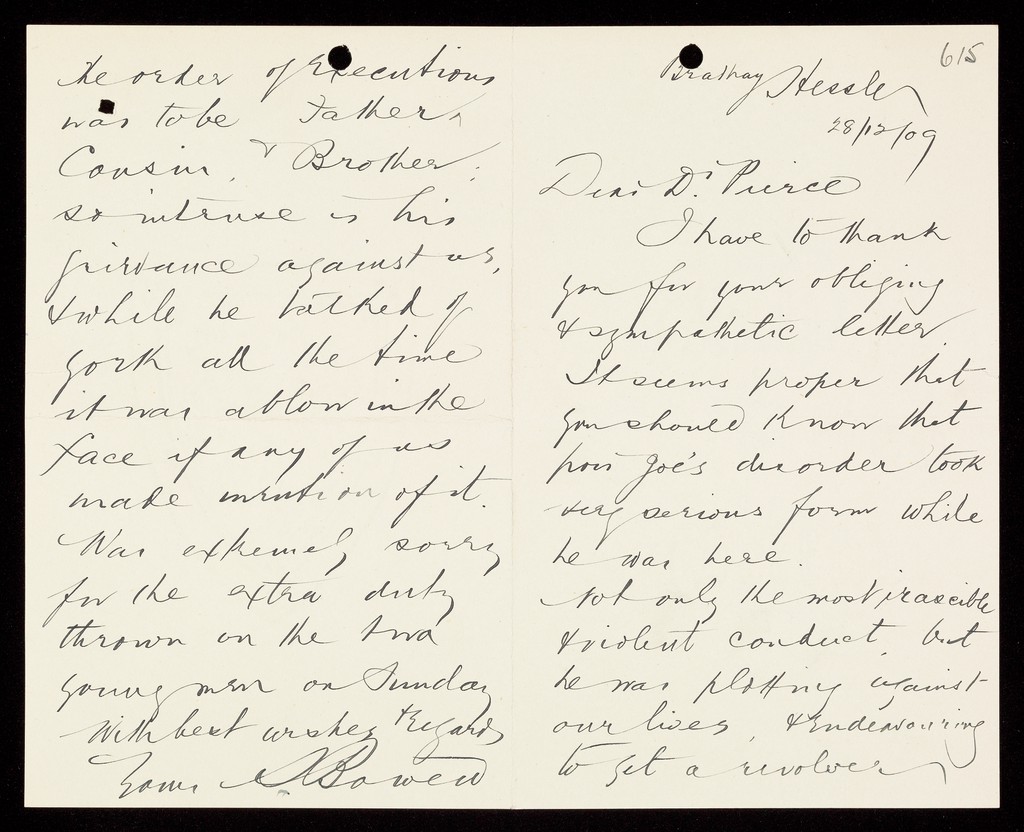 615
Brathay Hessle
28/12/09
Dear Dr. Pierce
I have to thank
you for your obliging
& sympathetic letter.
It seems proper that
you should know that
poor Joe's disorder took
very serious form while
he was here.
Not only the most irascible
& violent conduct, but
he was plotting against
our lives, & endeavouring
to get a revolver
the order of Executions
was to be Father,
Cousin, & Brother;
so intense is his
grievance against us,
& while he talked of
York all the time
it was a blow in the
face if any of us
made mention of it.
Was extremely sorry
for the extra duty
thrown on the two
young men on Sunday
With best wishes & regards
Yours Bowen